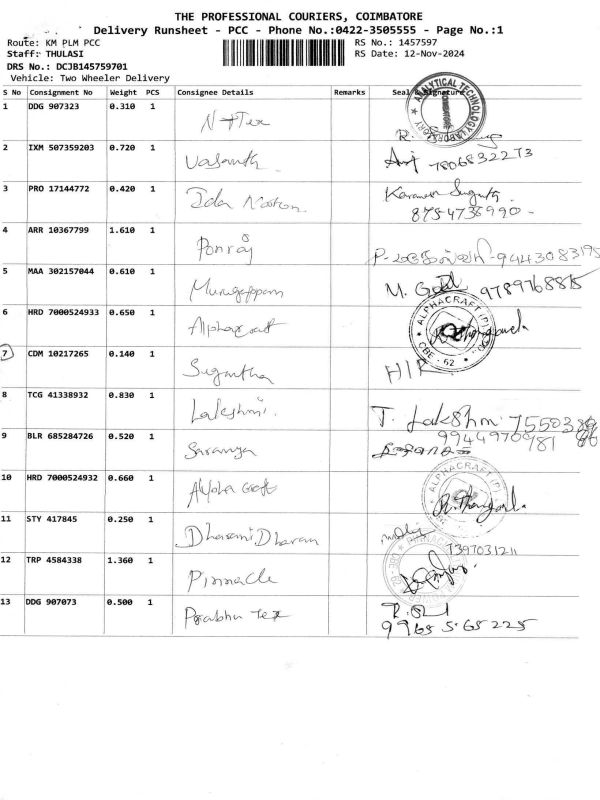 THE PROFESSIONAL COURIERS, COIMBATORE
Delivery Runsheet - PCC - Phone No.:0422-3505555 - Page No.:1
Route: KM PLM PCC RS No.: 1457597
Staff: THULASI RS Date: 12-Nov-2024
DRS No.: DCJB145759701
Vehicle: Two Wheeler Delivery
S No Consignment No Weight PCS Consignee Details Remarks Seal & Signature
1 DDG 907323 0.310 1 ANALYTICAL TECHNOLOGY
2 IXM 507359203 0.720 1 Vasanth 7806832273
3 PRO 17144772 0.420 1
8754736990
4 ARR 10367799 1.610 1 Ponraj 9443083195
5 MAA 302157044 0.610 1 Murugappan 9789768815
6 HRD 7000524933 0.650 1 Alphacraft ALPHACRAFT (P) CBE - 62
7 CDM 10217265 0.140 1 Sugantha
8 TCG 41338932 0.830 1 Lakshmi. T. Lakshmi
9 BLR 685284726 0.520 1 Saranya
10 HRD 7000524932 0.660 1 Alpha Craft ALPHACRAFT (P)
11 STY 417845 0.250 1 Dharani Dharan 7397031211
12 TRP 4584338 1.360 1 Pinnacle
13 DDG 907073 0.500 1 Prabhu Tex
99655 65225